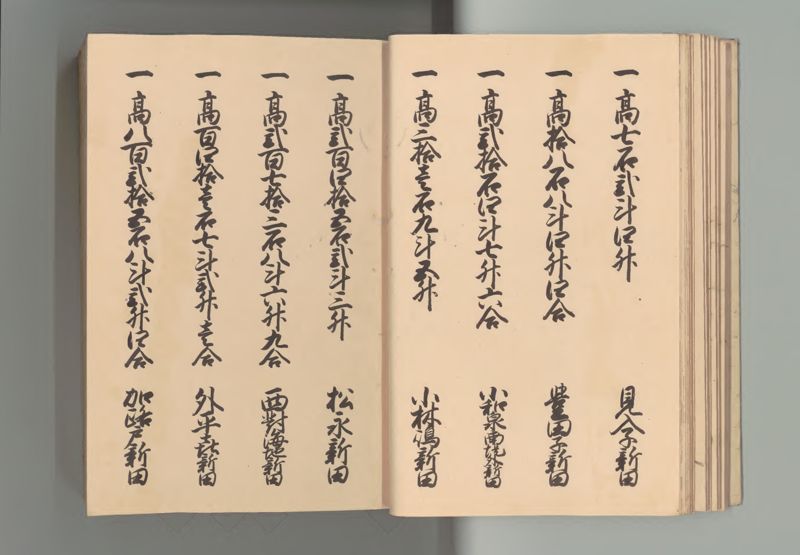 一 高七石弐斗四升 見入新田
一 高拾八石八斗四升四合 豊田子新田
一 高弐拾石四斗七升六合 小和泉南境外新田
一 高三拾壱石九斗五升 小林嶋新田
一 高弐百四拾五石弐斗三升 松永新田
一 高弐百七拾三石八斗六升九合 西対海地新田
一 高百四拾壱石七斗弐升壱合 外平喜新田
一 高八百弐拾五石八斗弐升四合 加路戸新田